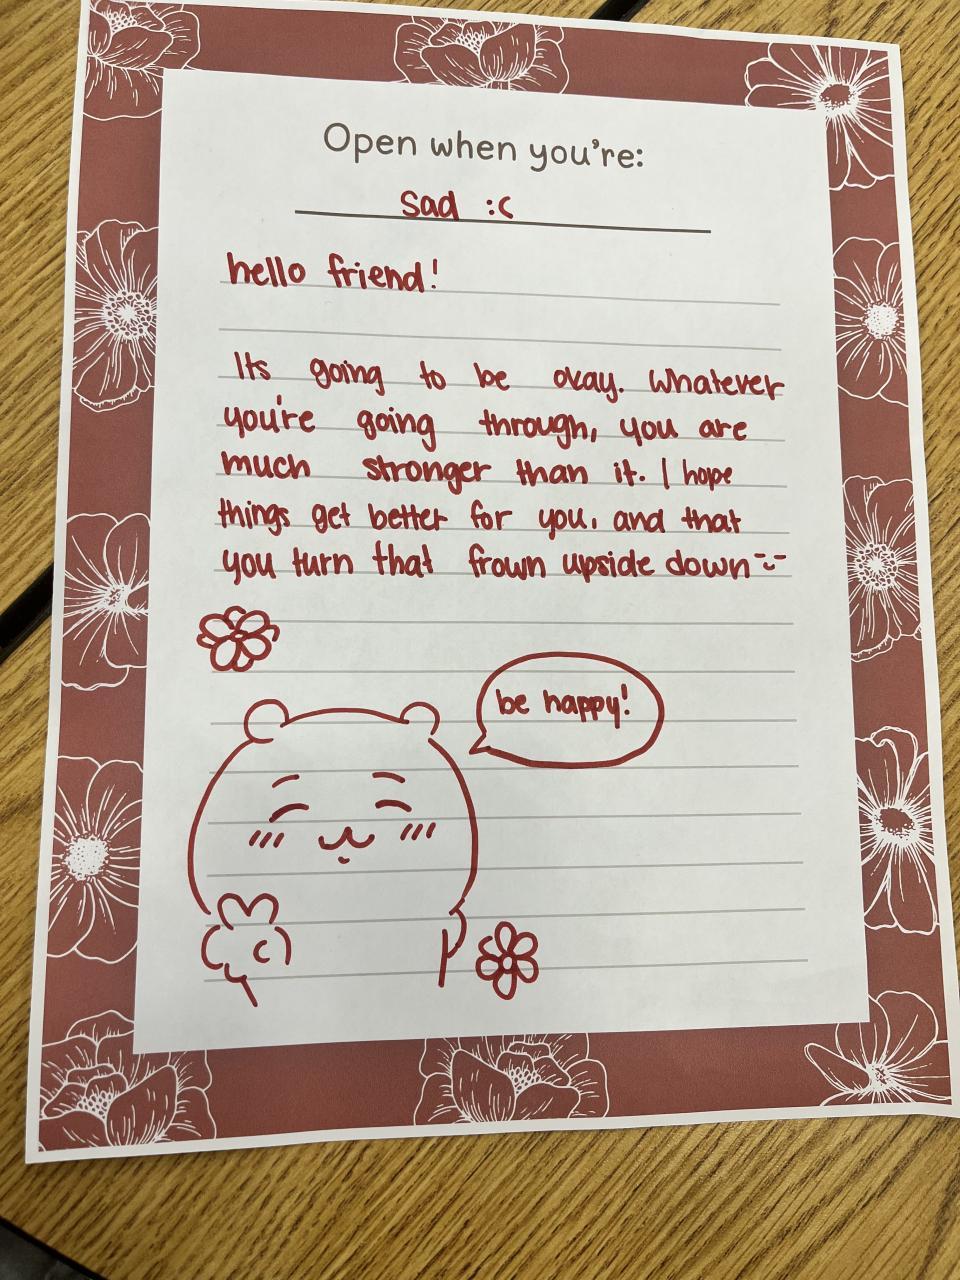 Open when you're:
sad :c
hello friend!
Its going to be okay. Whatever
you're going through, you are
much stronger than it. I hope
things get better for you, and that
you turn that frown upside down
be happy!